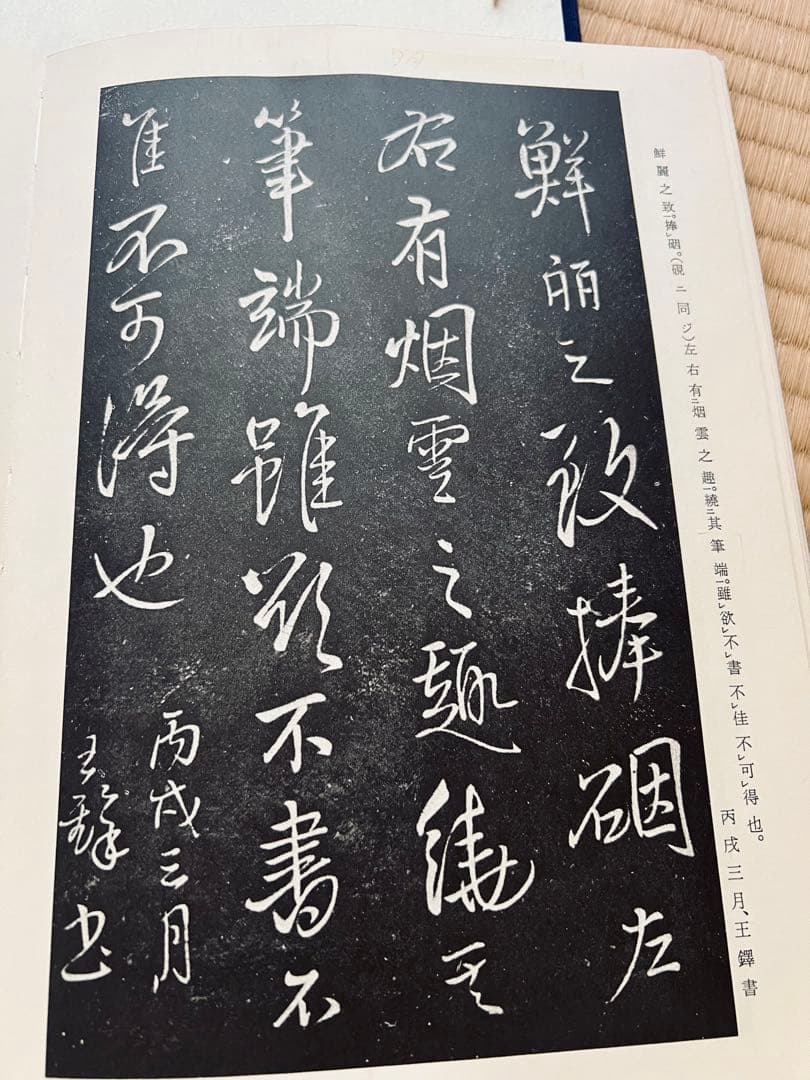 鮮麗之致。捧㆑硱。(硯ニ同ジ)左右有㆓烟雲之趣㆒。繞㆓其筆端㆒。雖㆑欲㆑不㆑書不㆑佳不㆑可㆑得也。
丙戌三月、王鐸書
鮮麗之致捧硱左
右有烟雲之趣繞其
筆端雖欲不書不
佳不可得也
丙戌三月
王鐸書